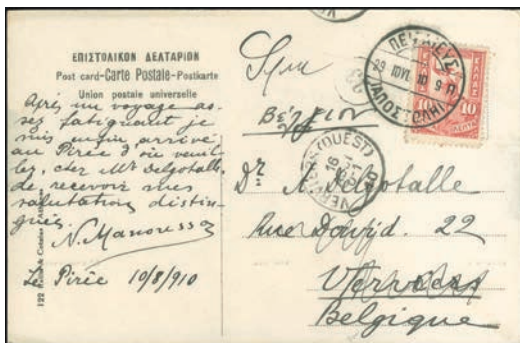 ΕΠΙΣΤΟΛΙΚΟΝ ΔΕΛΤΑΡΙΟΝ
Post card-Carte Postale-Postkarte
Union postale universelle
Après un voyage as-
sez fatiguant je
suis enfin arrivé
au Pirée d'où veuil-
lez, cher Mr Delgotalle,
de recevoir mes
salutations distin-
guées.
N. Manoussa
Le Pirée 10/8/910
122
ΠΕΙΡΑΙΕΥΣ
29 ΙΟΥΛ 10 9 Π
ΑΠΟΣΤΟΛΗ
ΕΛΛΑΣ
10 10
ΛΕΠΤΑ
Βέλγιον
VERVIERS (OUEST)
Dr A. Delgotalle
Rue David. 22
Verviers
Belgique